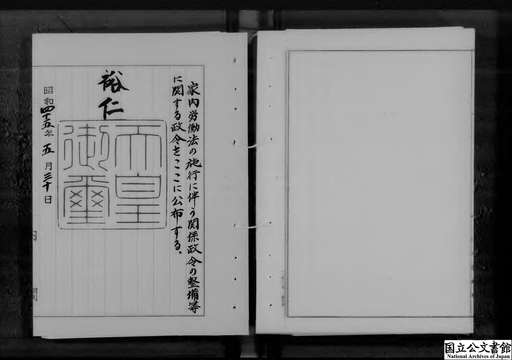 家内労働法の施行に伴う関係政令の整備等
に関する政令をここに公布する。
裕仁
天皇
御璽
昭和四十五年五月三十日
国立公文書館
National Archives of Japan